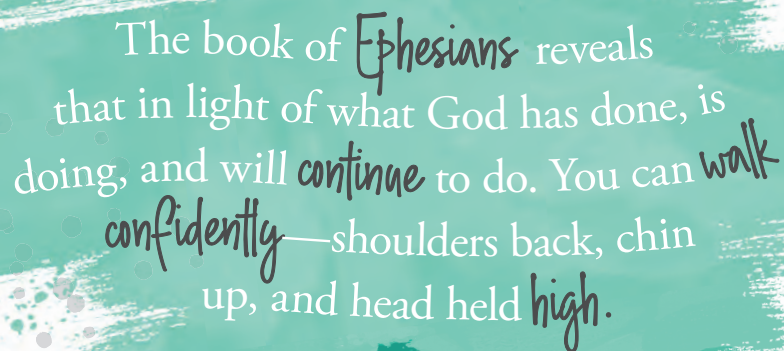 The book of Ephesians reveals
that in light of what God has done, is
doing, and will continue to do. You can walk
confidently—shoulders back, chin
up, and head held high.